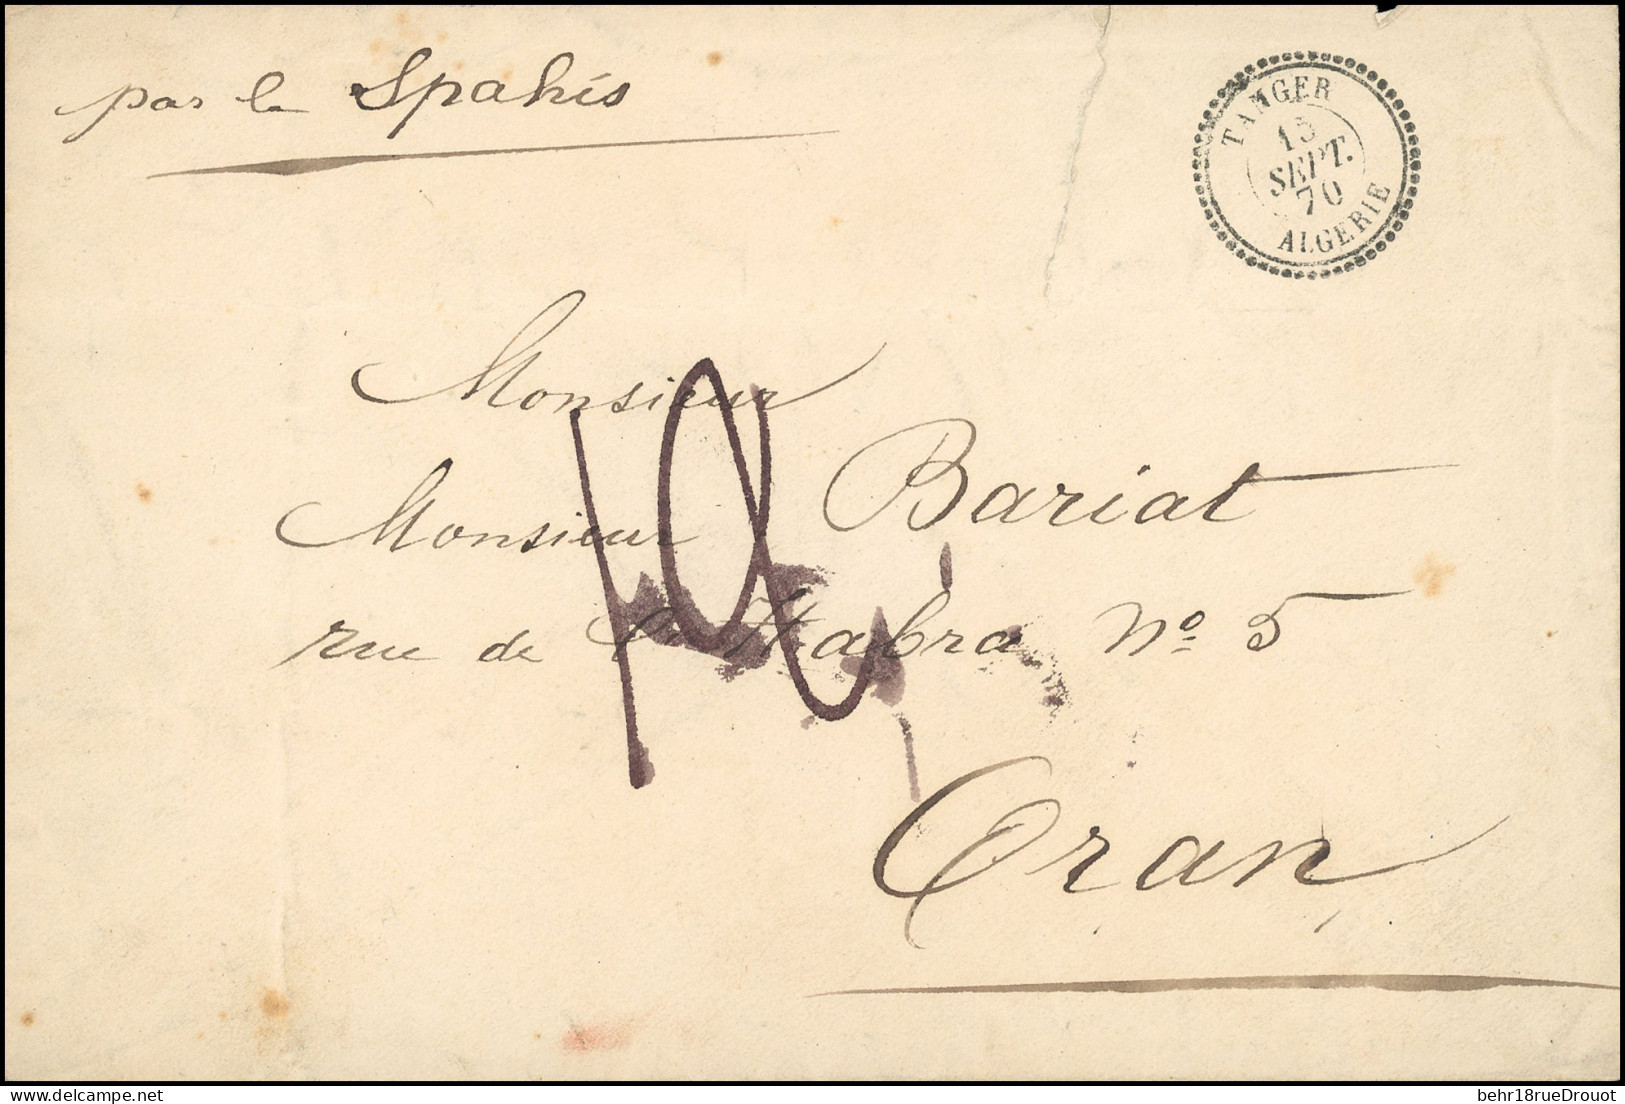 par le Spahis
TANGER
15
SEPT.
70
ALGERIE
Monsieur
Monsieur Bariat
rue de la Habra No 5
Oran
behr18rueDrouot